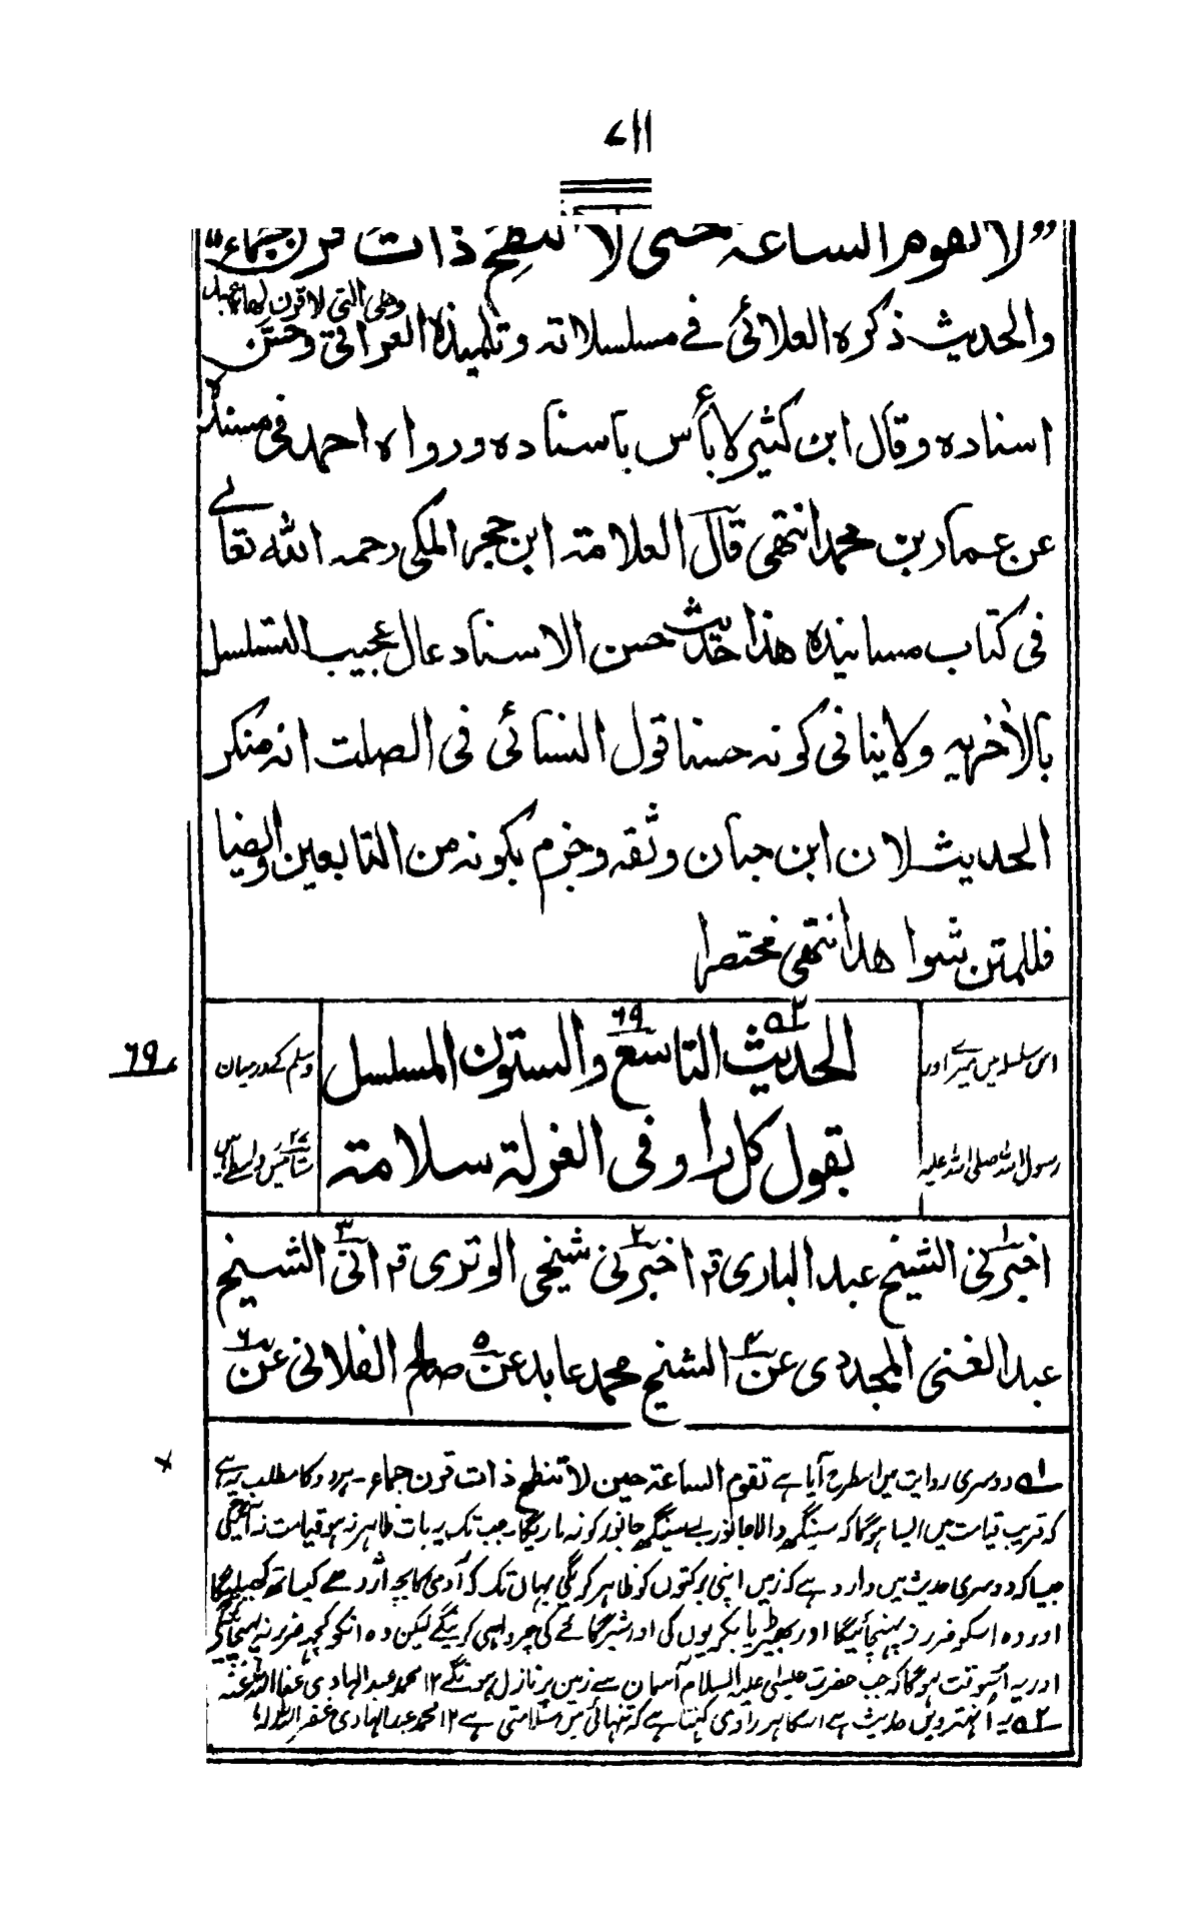 ۷۱۱
”لا تقوم الساعة حتى لا تنطح ذات قرن جماء“
وهى التى لا قرن لها
والحديث ذكره العلائى فے مسلسلاته وتلميذه العراقى وحسن
اسناده وقال ابن كثير لا بأس باسناده ورواه احمد فى مسنده
عن عمار بن محمد انتهى قال العلامة ابن حجر المكى رحمه الله تعالے
فى كتاب مسانيده هذا حديث حسن الاسناد عال عجيب التسلسل
بالأخرية ولا ينافى كونه حسنا قول النسائى فى الصلت انه منكر
الحديث لان ابن حبان وثقه وجزم بكونه من التابعين وايضا
فللمتن شوا هد انتهى مختصرا
اس سلسلہ میں میرے اور
رسول اللہ صلی اللہ علیہ
وسلم کے درمیان
ستائیس واسطے ہیں
الحديث التاسع والستون المسلسل
بقول كل راو فى العزلة سلامة
۶۹
اخبرنى الشيخ عبد البارى قد اخبرنى شيخى الوترى قد انى الشيخ
عبد الغنى المجددى عن الشيخ محمد عابد عن صالح الفلانى عن
۱ دوسری روایت میں اسطرح آیا ہے تقوم الساعة حين لا تنطح ذات قرن جماء ۔ ہردو کا مطلب یہ ہے
کہ قریب قیامت میں ایسا ہوگا کہ سینگھ والا جانور بے سینگھ جانور کو نہ ماریگا۔ جب تک یہ بات ظاہر نہ ہو قیامت نہ آئیگی
جیسا کہ دوسری حدیث میں وارد ہے کہ زمین اپنی برکتوں کو ظاہر کریگی یہاں تک کہ آدمی کا بچہ اژدھے کیساتھ کھیلیگا
اور وہ اسکو ضرر نہ پہنچائیگا اور بھیڑیا بکریوں کی اور شیر گائے کی چرواہی کرینگے لیکن وہ انکو کچھ ضرر نہ پہنچائینگے
اور یہ اسوقت ہوگا کہ جب حضرت عیسیٰ علیہ السلام آسمان سے زمین پر نازل ہونگے ۱۲ محمد عبد الہادی عفا اللہ عنہ
۲ یہ اُنہترویں حدیث ہے اسکا ہر راوی کہتا ہے کہ تنہائی میں سلامتی ہے ۱۲ محمد عبد الہادی غفر اللہ لہ